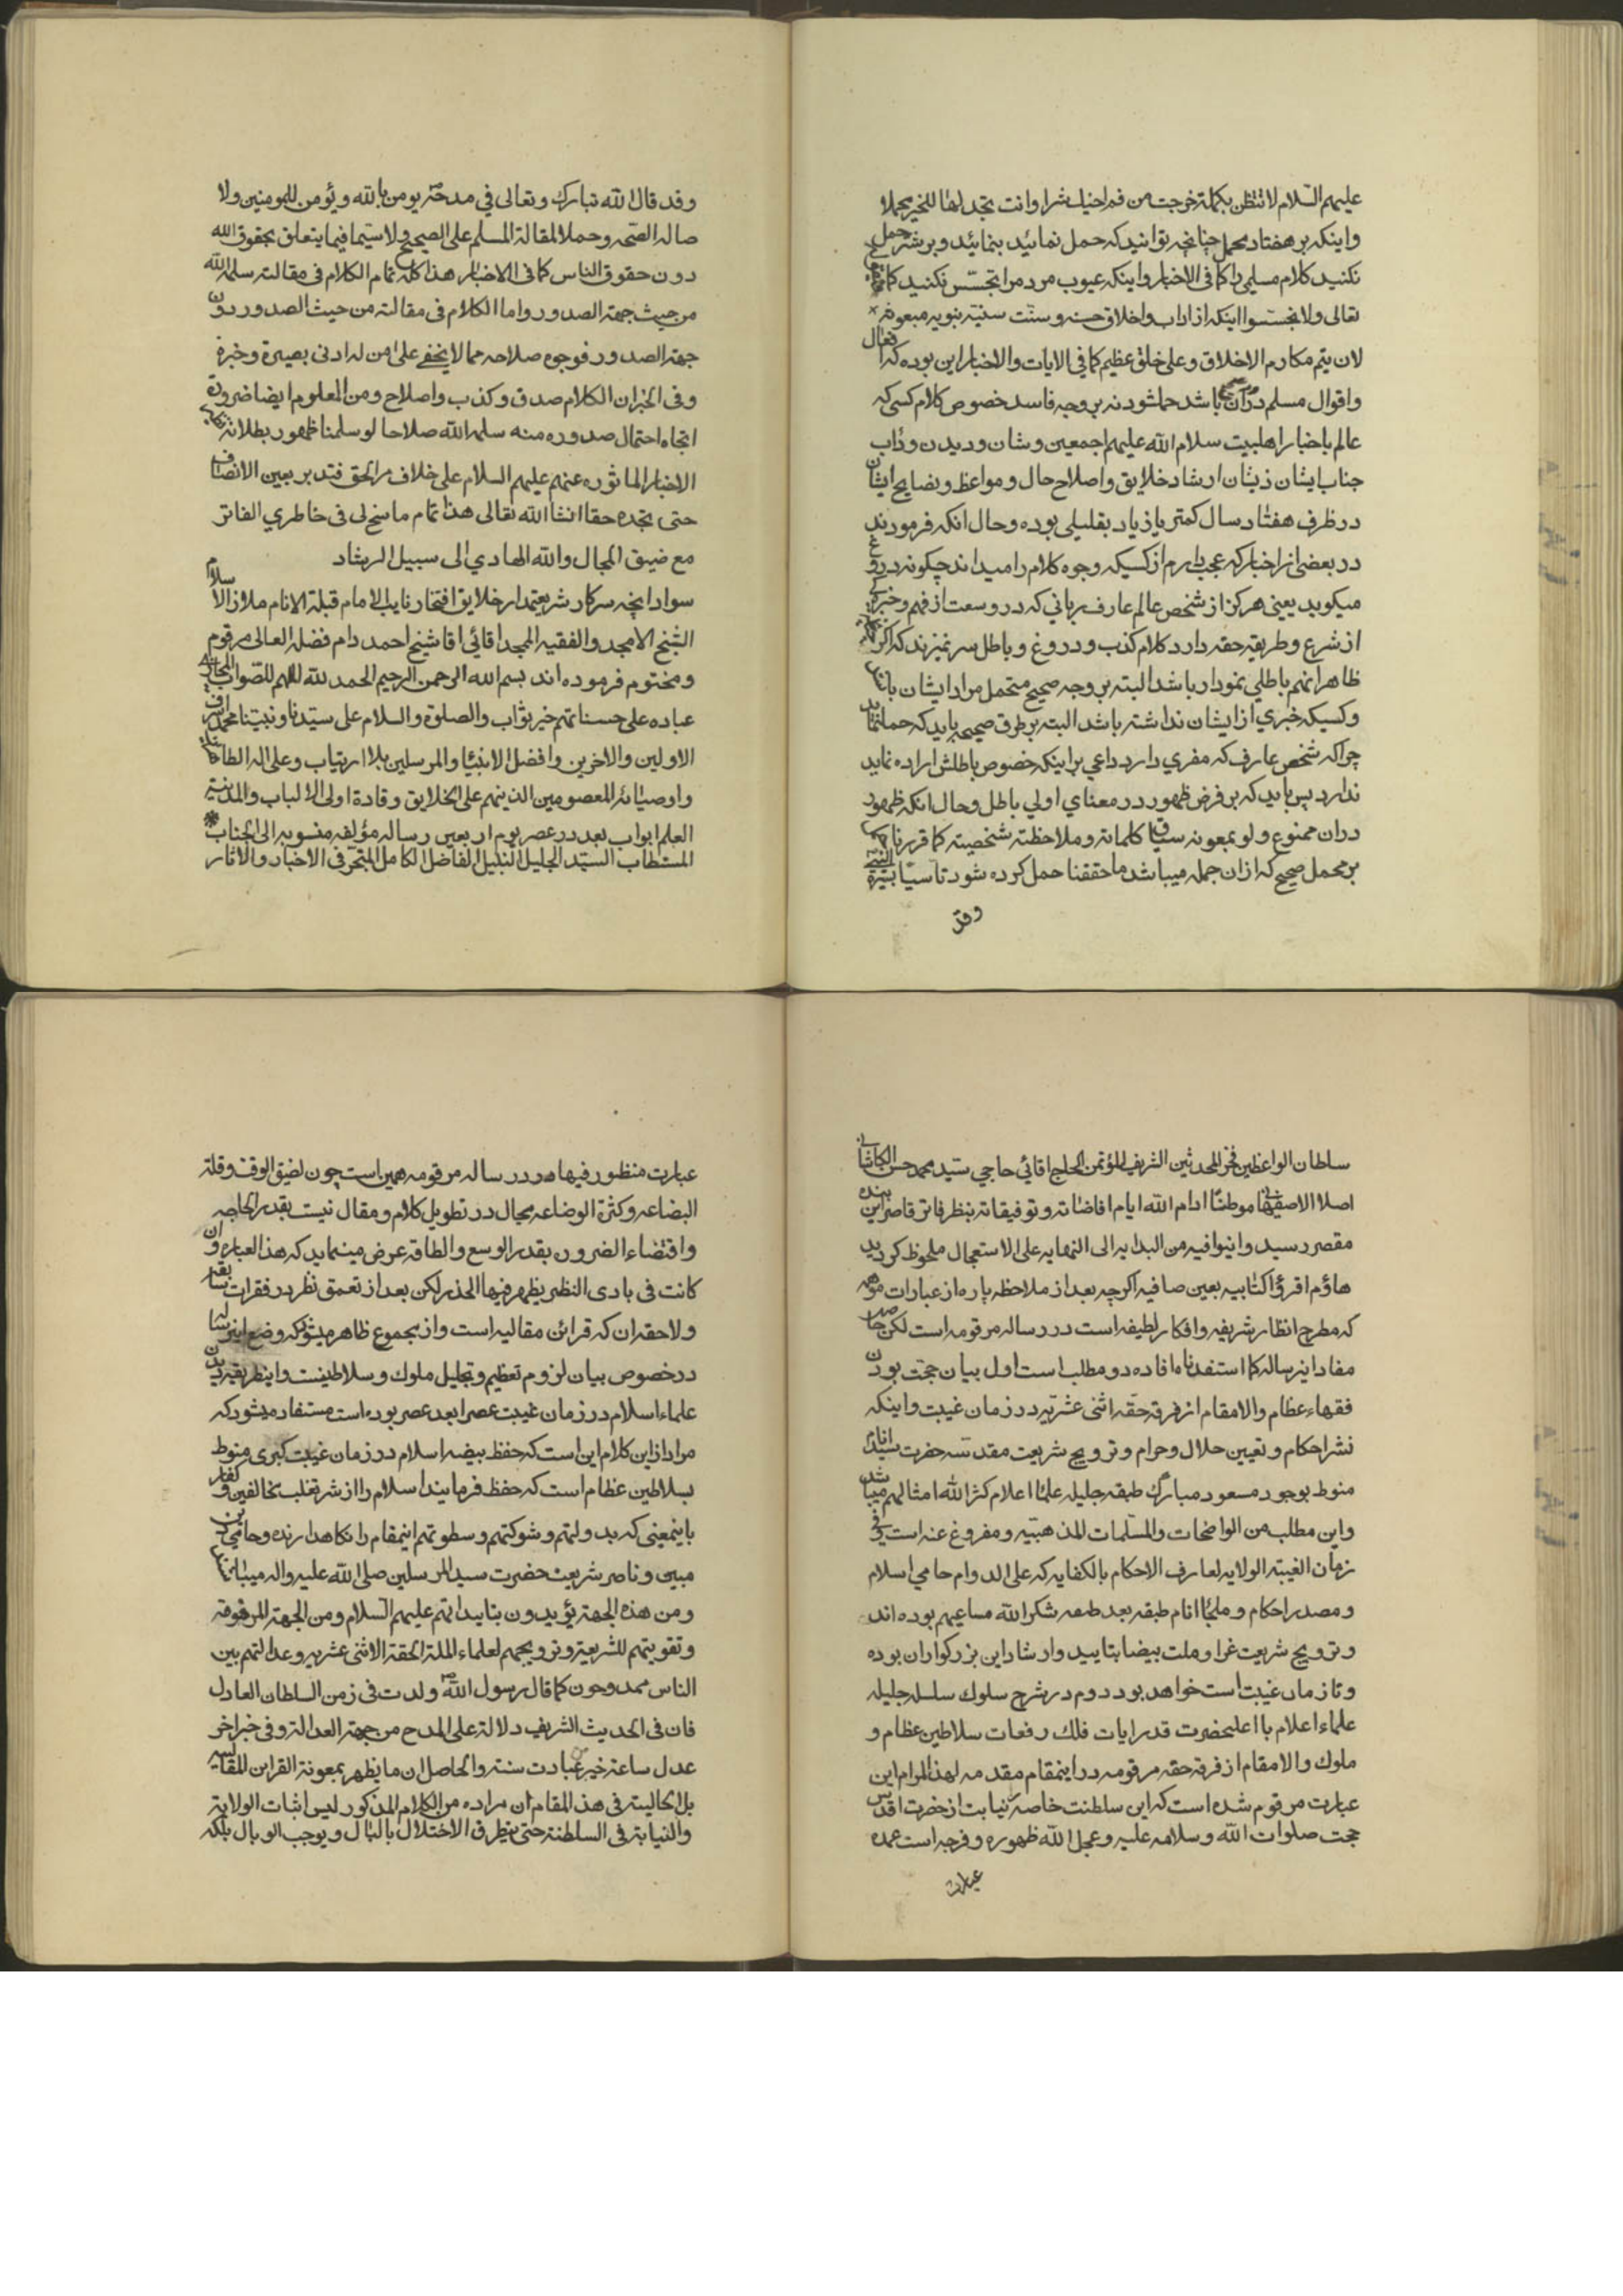 علیهم السلام لا تظن بکلمة خرجت من فم اخیک شرا وانت تجد لها للخیر محملا
واینکه بر هفتاد محمل چنانچه توانید که حمل نمائید بنمائید و بر شر حمل
نکنید کلام مسلمی را کما فی الاخبار و اینکه عیوب مردم را تجسّس نکنید کما
تعالی ولا تجسّسوا اینکه از اداب و اخلاق حسنه و سنّت سنیّه نبویه مبعوثه
لان یتم مکارم الاخلاق وعلی خلق عظیم کما فی الایات والاخبار این بوده که افعال
واقوال مسلم در آن باشد حمل شود نه بر وجه فاسد خصوص کلام کسی که
عالم باخبار اهلبیت سلام الله علیهم اجمعین وشان ودیدن وداب
جناب ایشان ذیشان ارشاد خلایق و اصلاح حال و مواعظ و نصایح ایشان
در ظرف هفتاد سال کمتر یا زیاد بقلیلی بوده و حال انکه فرمودند
در بعضی از اخبار که عجب دارم از کسیکه وجوه کلام را میداند چکونه دروغ
میکوید یعنی هرکز از شخص عالم عارف ربانی که در وسعت از فهم و خبرکی
از شرع و طریقه حقه دارد کلام کذب و دروغ و باطل سر نمیزند که اکر
ظاهرا نهم باطلی نمودار باشد البته بر وجه صحیح متحمل مراد ایشان باشد
وکسیکه خبری از ایشان نداشته باشد البته بر طرق صحیحه باید که حمل نماید
چراکه شخص عارف که مفری دارد داعی بر اینکه خصوص باطلش اراده نماید
ندارد پس باید که بر فرض ظهور در معنای اولی باطل وحال انکه ظهور
دران ممنوع ولو بمعونه سیاق کلماته وملاحظة شخصیته کما قررناه
بر محمل صحیح که از ان جمله میباشد ما حققنا حمل کرده شود تاسیا بسیرة النبی
وقد
وقد قال الله تبارک وتعالی فی مدحته یومن بالله ویؤمن للمومنین ولا
صالة الصحه وحملا لمقالة المسلم علی الصحیح ولا سیما فیما یتعلق بحقوق الله
دون حقوق الناس کما فی الاخبار هذا کله تمام الکلام فی مقالته سلمه الله
من حیث جهة الصدور واما الکلام فی مقالته من حیث الصدور دون
جهة الصدور فوجوه صلاحه مما لا یخفی علی من له ادنی بصیرة وخبرة
وفی الخبر ان الکلام صدق وکذب واصلاح ومن المعلوم ایضا ضرورة
اتجاه احتمال صدوره منه سلمه الله صلاحا لو سلمنا ظهور بطلانه
الاخبار الماثوره عنهم علیهم السلام علی خلاف مر الحق فتدبر بعین الانصاف
حتی تجده حقا انشا الله تعالی هذا تمام ما سنح لی فی خاطری الفاتر
مع ضیق المجال والله الهادی الی سبیل الرشاد
سواد انچه سرکار شریعتمدار خلایق افتخار نایب الامام قبلة الانام ملاذ الاسلام
الشیخ الامجد والفقیه الممجد اقائی اقا شیخ احمد دام فضله العالی مرقوم
ومختوم فرموده اند بسم الله الرحمن الرحیم الحمد لله الملهم للصواب المجازی
عباده علی حسناتهم خیر ثواب والصلوة والسلام علی سیدنا ونبینا محمد اشرف
الاولین والاخرین وافضل الانبیا والمرسلین بلا ارتیاب وعلی اله الطاهرین
واوصیائه المعصومین الذین هم علی الخلایق وقادة اولی الالباب والمدینة
العلم ابواب بعد در عصر یوم اربعین رساله مؤلفه منسوبه الی الجناب
المستطاب السید الجلیل النبیل الفاضل الکامل المتبحر فی الاخبار والاثار
سلطان الواعظین فخر المحدثین الشریف المؤتمن الحاج اقائی حاجی سید محمد حسن الکاشانی
اصلا الاصفهانی موطنا ادام الله ایام افاضاته وتوفیقاته بنظر فاتر قاصر این بنده
مقصر رسید وانیوافیه من البدایه الی النهایه علی الاستعجال ملحوظ کردید
هاؤم اقرؤا کتابیه بعین صافیه اکرچه بعد از ملاحظه پاره از عبارات موهمه
که مطرح انظار شریفه وافکار لطیفه است در رساله مرقومه است لکن حاصل
مفاد اینرساله کما استفدنا ما افاده دو مطلب است اول بیان حجت بودن
فقهاء عظام والامقام از فرقه حقه اثنی عشریه در زمان غیبت و اینکه
نشر احکام و تعیین حلال و حرام و ترویج شریعت مقدسه حضرت سید انام
منوط بوجود مسعود مبارک طبقه جلیله علماء اعلام کثر الله امثالهم میباشد
واین مطلب من الواضحات والمسلمات المذهبیه ومفروغ عنه است فی
زمان الغیبة الولایه لعارف الاحکام بالکفایه که علی الدوام حامی اسلام
ومصدر احکام وملجأ انام طبقه بعد طبقه شکر الله مساعیهم بوده اند
وترویج شریعت غرا وملت بیضا بتایید وارشاد این بزرکواران بوده
وتا زمان غیبت است خواهد بود دوم در شرح سلوک سلسله جلیله
علماء اعلام با اعلیحضرت قدر ایات فلک رفعات سلاطین عظام و
ملوک والامقام از فرقه حقه مرقومه در اینمقام مقدمه لهذا المرام این
عبارت مرقوم شده است که این سلطنت خاصه نیابت از حضرت اقدس
حجت صلوات الله وسلامه علیه وعجل الله ظهوره وفرجه است عمده
عبارت
عبارت منظور فیها در رساله مرقومه همین است چون لضیق الوقت وقلة
البضاعه وکثرة الوضاعه مجال در تطویل کلام ومقال نیست بقدر الحاجه
واقتضاء الضرورة بقدر الوسع والطاقه عرض مینماید که هذا العباره وان
کانت فی بادی النظر یظهر فیها الحذر لکن بعد از تعمق نظر در فقرات سابقه
ولاحقه ان که قرائن مقالیه است واز مجموع ظاهر میشود که وضع اینرساله
در خصوص بیان لزوم تعظیم وتجلیل ملوک وسلاطینست واینطریقه دیدن
علماء اسلام در زمان غیبت عصرا بعد عصر بوده است مستفاد میشود که
مراد از این کلام این است که حفظ بیضه اسلام در زمان غیبت کبری منوط
بسلاطین عظام است که حفظ فرمایند اسلام را از شر تغلب مخالفین وکفار
باینمعنی که بدولتهم وشوکتهم وسطوتهم اینمقام را نکاهدارنده وحامی دین
مبین وناصر شریعت حضرت سید المرسلین صلی الله علیه واله میباشند
ومن هذه الجهة یؤیدون بتاییداتهم علیهم السلام ومن الجهة المرقومة
وتقویتهم للشریعة وترویجهم لعلماء الملة الحقة الاثنی عشریه وعدالتهم بین
الناس ممدوحون کما قال رسول الله ص ولدت فی زمن السلطان العادل
فان فی الحدیث الشریف دلالة علی المدح من جهة العدالة وفی خبر اخر
عدل ساعة خیر من عبادت سنة والحاصل ان ما یظهر بمعونة القراین المقالیه
بل الحالیة فی هذ المقام ان مراده من الکلام المذکور لیس اثبات الولایة
والنیابة فی السلطنة حتی یتطرق الاختلال بالبال ویوجب الوبال بلکه